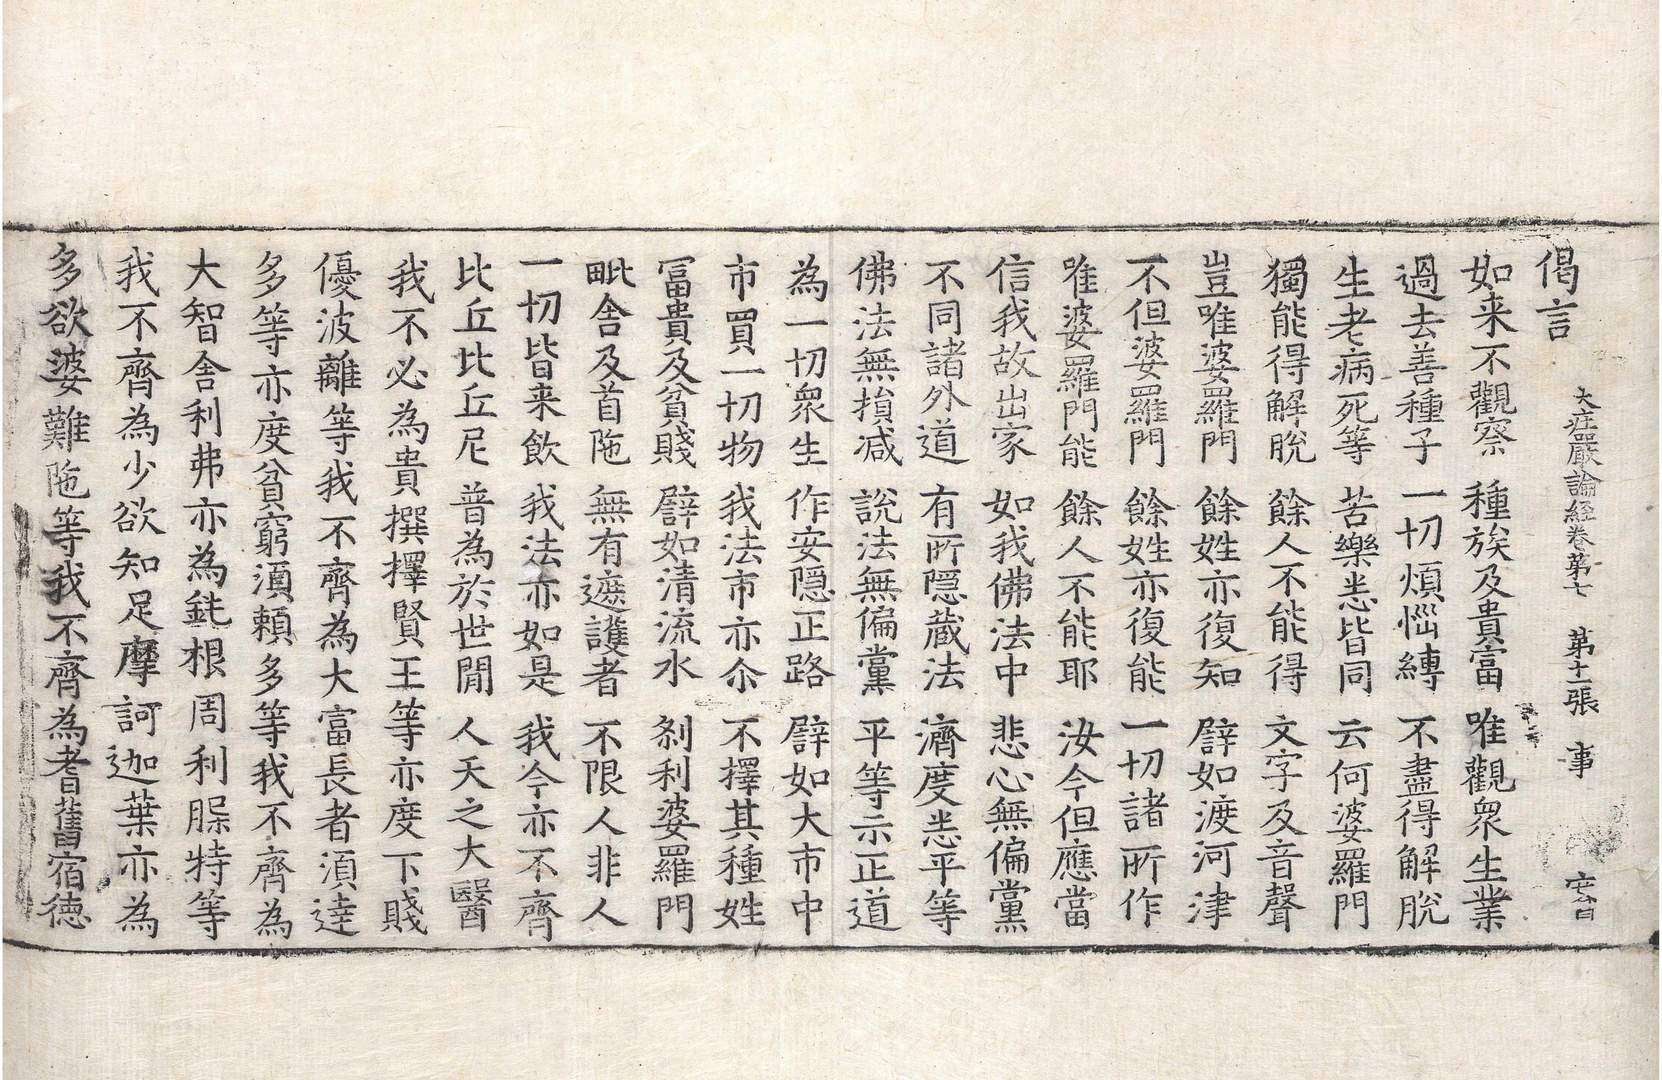 大庄嚴論経卷第七　第十二張　事　安首
偈言
如来不觀察　種族及貴富　唯觀衆生業
過去善種子　一切煩惱縛　不盡得解脫
生老病死等　苦樂悉皆同　云何婆羅門
獨能得解脫　餘人不能得　文字及音聲
豈唯婆羅門　餘姓亦復知　譬如渡河津
不但婆羅門　餘姓亦復能　一切諸所作
唯婆羅門能　餘人不能耶　汝今但應當
信我故出家　如我佛法中　悲心無偏黨
不同諸外道　有所隱藏法　濟度悉平等
佛法無損減　說法無偏黨　平等示正道
為一切衆生　作安隱正路　譬如大市中
市買一切物　我法市亦尒　不擇其種姓
冨貴及貧賤　譬如清流水　剎利婆羅門
毗舍及首陁　無有遮護者　不限人非人
一切皆来飲　我法亦如是　我今亦不齊
比丘比丘尼　普為於世閒　人天之大醫
我不必為貴撰擇賢王等亦度下賤
優波離等我不齊為大富長者湏達
多等亦度貧窮湏賴多等我不齊為
大智舍利弗亦為鈍根周利膎特等
我不齊為少欲知足摩訶迦葉亦為
多欲婆難陁等我不齊為耆舊宿德